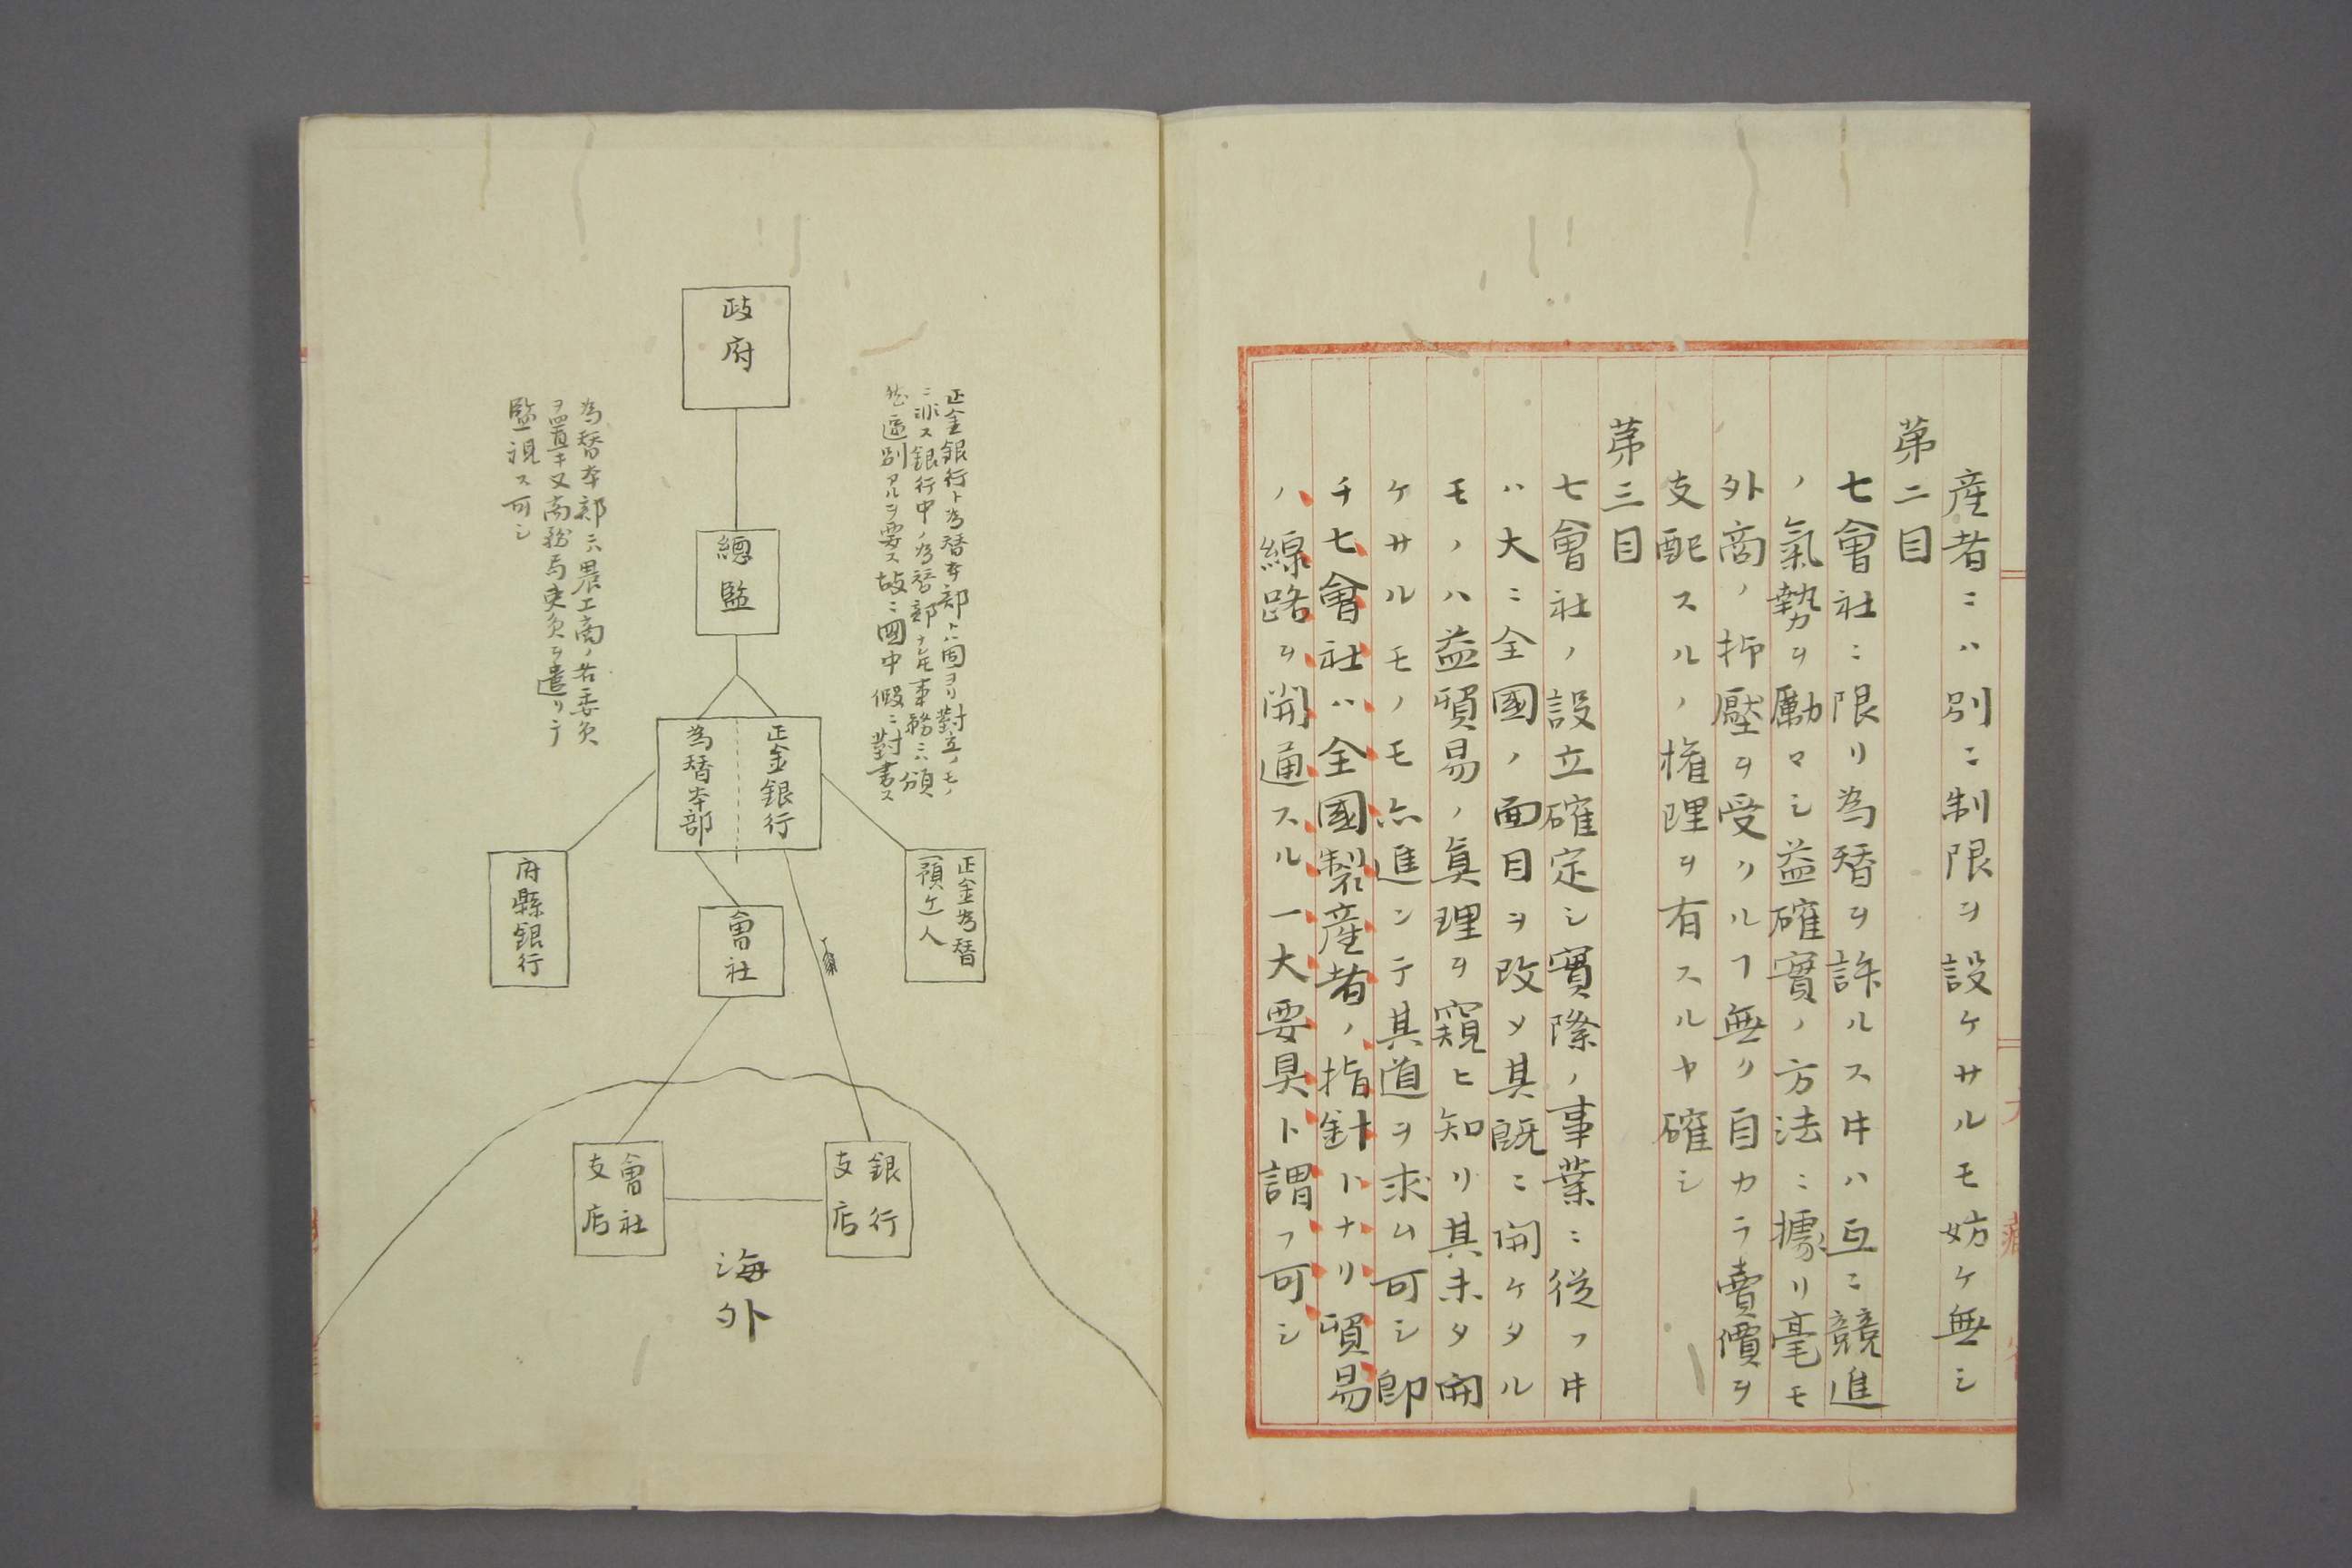 産者ニハ別ニ制限ヲ設ケサルモ妨ケ無シ
第二目
七會社ニ限リ為替ヲ許ルスヰハ互ニ競進
ノ氣勢ヲ勵マシ益確實ノ方法ニ據リ毫モ
外商ノ抑壓ヲ受クルヿ無ク自カラ賣價ヲ
支配スルノ権理ヲ有スルヤ確シ
第三目
七會社ノ設立確定シ實際ノ事業ニ従フヰ
ハ大ニ全國ノ面目ヲ改メ其既ニ開ケタル
モノハ益貿易ノ眞理ヲ窺ヒ知リ其未タ開
ケサルモノモ亦進ンテ其道ヲ求ム可シ即
チ七會社ハ全國製産者ノ指針トナリ貿易
ノ線路ヲ開通スル一大要具ト謂フ可シ
正金銀行ト為替本部トハ固ヨリ對立ノモノ
ニ非ス銀行中ノ為替部ナレ𪜈事務ニハ頒
然區別アルヲ要ス故ニ圖中假ニ對書ス
政府
總監
正金銀行
為替本部
正金為替
預ケ人
會社
府縣銀行
銀行
支店
會社
支店
海外
為替本部ニハ農工商ノ若委員
ヲ置キ又商務局吏員ヲ遣リテ
監視ス可シ